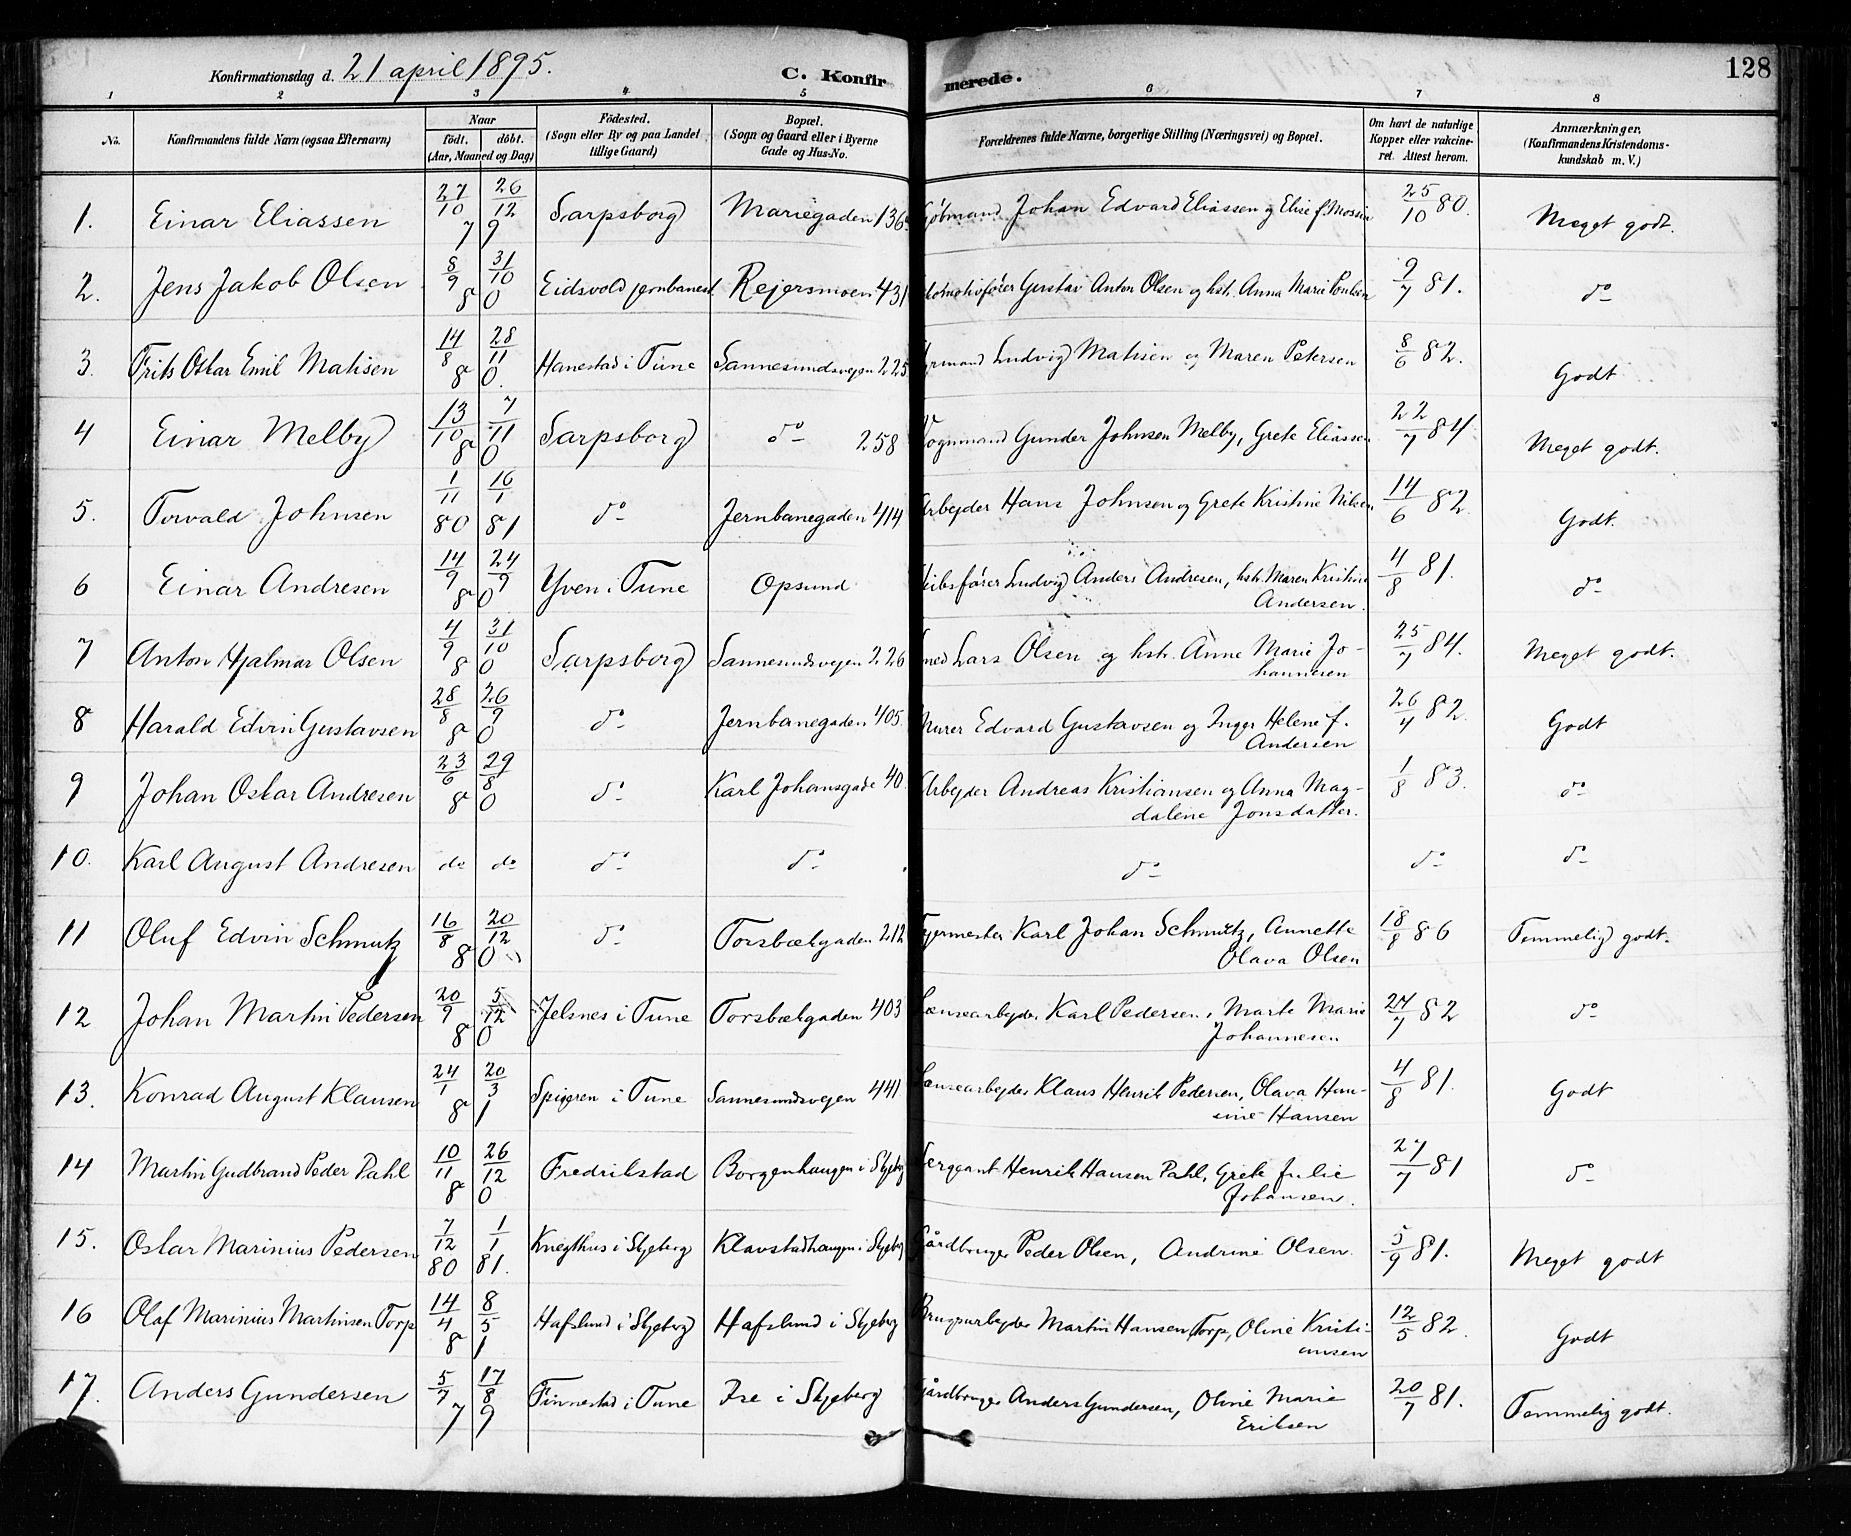 Konfirmationsdag d. 21 april 1895. C. Konfirmerede. 128
1 2 3 4 5 6 7 8
No. Konfirmandens fulde Navn (ogsaa Efternavn) Naar födt. döbt. (Aar, Maaned og Dag) Födested. (Sogn eller By og paa Landet tillige Gaard) Bopæl. (Sogn og Gaard eller i Byerne Gade og Hus-No. Forældrenes fulde Navne, borgerlige Stilling (Næringsvei) og Bopæl. Om havt de naturlige Kopper eller vakcineret. Attest herom. Anmærkninger. (Konfirmandens Kristendomskundskab m. V.)
1. Einar Eliassen 27/10 79 26/12 79 Sarpsborg Mariegaden 136 Johan Edvard Eliassen og Elise f. 25/10 80. Meget godt.
2. Jens Jakob Olsen 8/9 80 31/10 80 Eidsvold jernbanest Rejersmoen 431 Gustav Anton Olsen og hstr. Anna Marie Poulsen 9/7 81. do
3. Frits Oskar Emil Matisen 14/8 80 28/11 80. Hanestad i Tune Sannesundsvejen 225 Ludvig Matisen og Maren Petersen 8/6 82. Godt
4 Einar Melby 13/10 80 7/11 80 Sarpsborg do 258 Vognmand Gunder Johnsen Melby, Grete Eliassen 22/7 84 Meget godt.
5. Torvald Johnsen 1/11 80 16/1 81 do Jernbanegaden 414 Arbejder Hans Johnsen og Grete Kristine Nilsen 14/6 82 Godt.
6 Einar Andresen 14/9 80 24/9 80 Yven i Tune Opsund Skibsfører Ludvig Anders Andresen, hstr. Maren Kristine Andersen. 4/8 81. do
7 Anton Hjalmar Olsen 4/9 80 31/10 80 Sarpsborg Sannesundsvejen 226 Lars Olsen og hstr. Anne Marie Johannesen 25/7 84. Meget godt.
8 Harald Edvin Gustavsen 28/8 80 26/9 80 do Jernbanegaden 405. Murer Edvard Gustavsen og Inger Helene f. Andersen 26/4 82. Godt
9 Johan Oskar Andresen 23/6 80 29/8 80 do Karl Johansgade 40. Arbejder Andreas Kristiansen og Anna Magdalene Jonsdatter. 1/8 83. do
10. Karl August Andresen do do do do do do do
11 Oluf Edvin Schmutz 16/8 80 20/12 80 do Torsbækgaden 212 Karl Johan Schmutz, Annette Olava Olsen 18/8 86 Temmelig godt.
12 Johan Martin Pedersen 20/9 80 5/12 80 Jelsnes i Tune Torsbækgaden 403 Lænsearbejder Karl Pedersen, Marte Marie Johannesen 24/7 82 do
13. Konrad August Klausen 24/1 81 20/3 81 Spigeren i Tune Sannesundsvejen 441. Lænsearbejder Klaus Henrik Pedersen, Olava Hansine Hansen 4/8 81. Godt
14 Martin Gudbrand Peder Pahl 10/11 80 26/12 80 Fredrikstad Borgenhaugen i Skjeberg Serggant Henrik Hansen Pahl, Grete Julie Johansen. 27/7 81 do
15. Oskar Marinius Pedersen 7/12 80 1/1 81. Knegthus i Skjeberg Klavstadhaugen i Skjeberg Gårdbruger Peder Olsen, Andrine Olsen. 5/9 81. Meget godt
16 Olaf Marinius Martinsen Torp 14/4 81 8/5 81 Hafslund i Skjeberg Hafslund i Skjeberg Brugsarbejder Martin Hansen Torp, Oline Kristiansen 12/5 82. Godt
17. Anders Gundersen 5/7 79 17/8 79 Finnestad i Tune Ise i Skjeberg Gårdbruger Anders Gundersen, Oline Marie Eriksen 20/7 81. Temmelig godt.